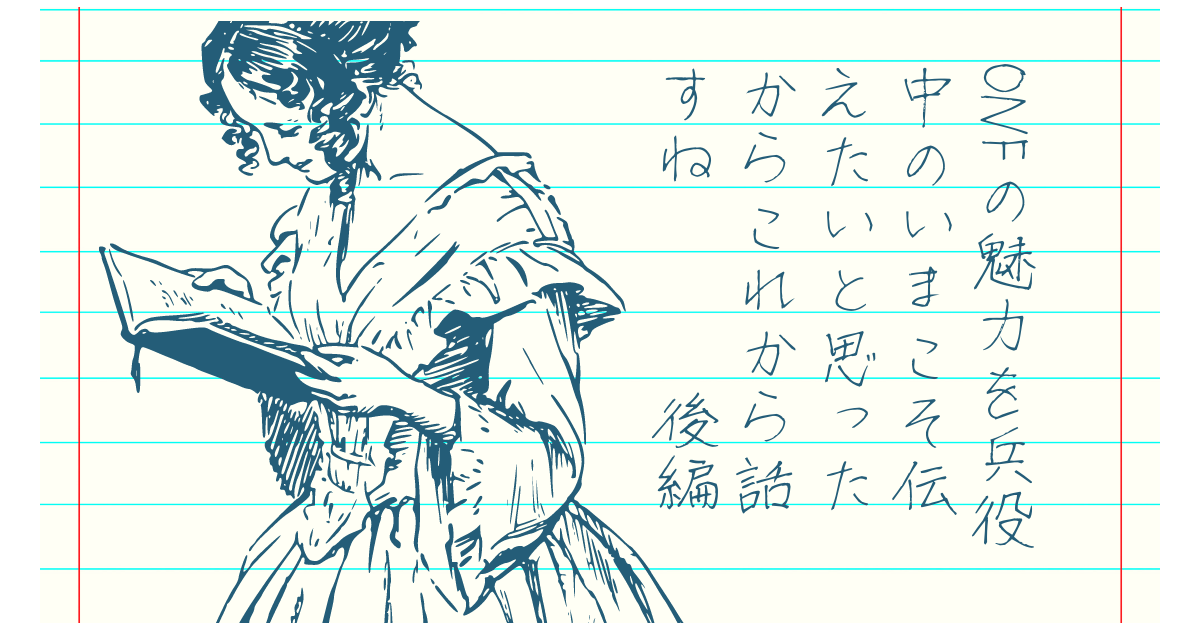 OWFの魅力を兵役
中のいまこそ伝
えたいと思った
からこれから話
すね　　　後編